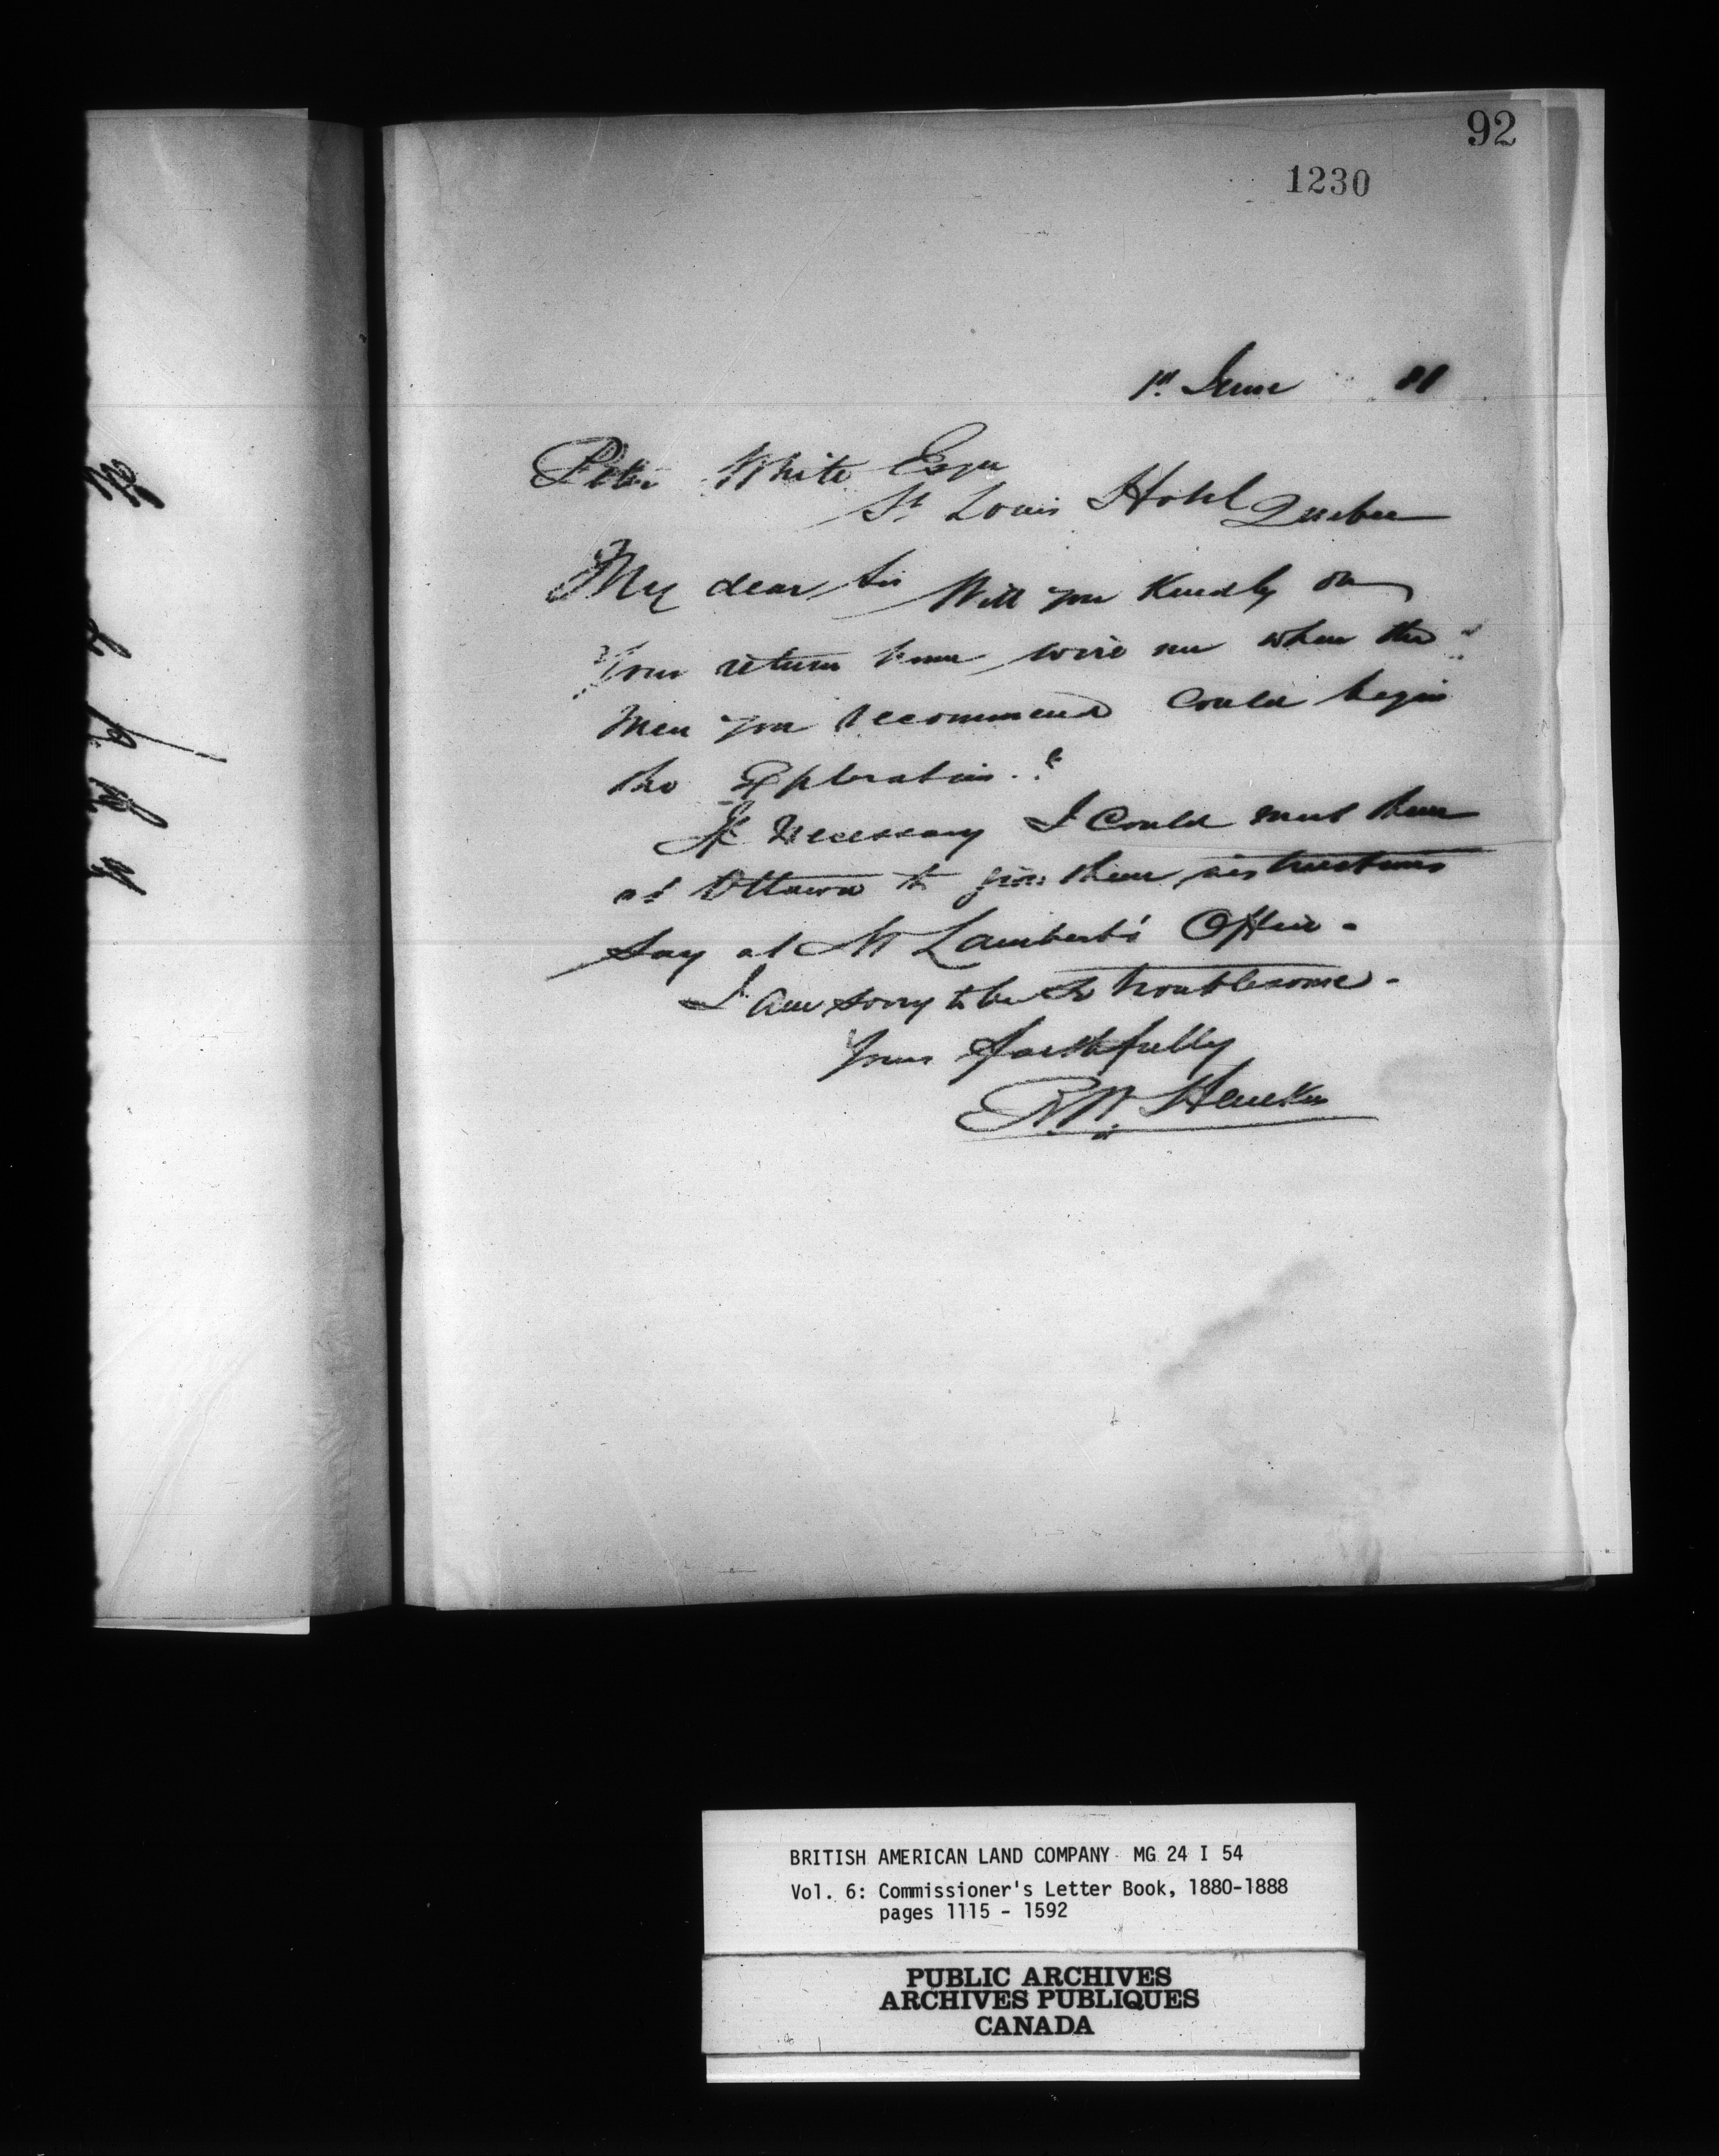 92
1230
1st June 81
Peter White Esqre
St. Louis Hotel Quebec
My dear Sir Will you kindly on
your return home wire me when the
Men you recommend could begin
the Exploration.?
If Necessary I Could meet them
at Ottawa to give them instructions
say at Mr Lambert's Office -
I am sorry to be so troublesome -
Yours faithfully
R.W. Heneker
BRITISH AMERICAN LAND COMPANY MG 24 I 54
Vol. 6: Commissioner's Letter Book, 1880-1888
pages 1115 - 1592
PUBLIC ARCHIVES
ARCHIVES PUBLIQUES
CANADA